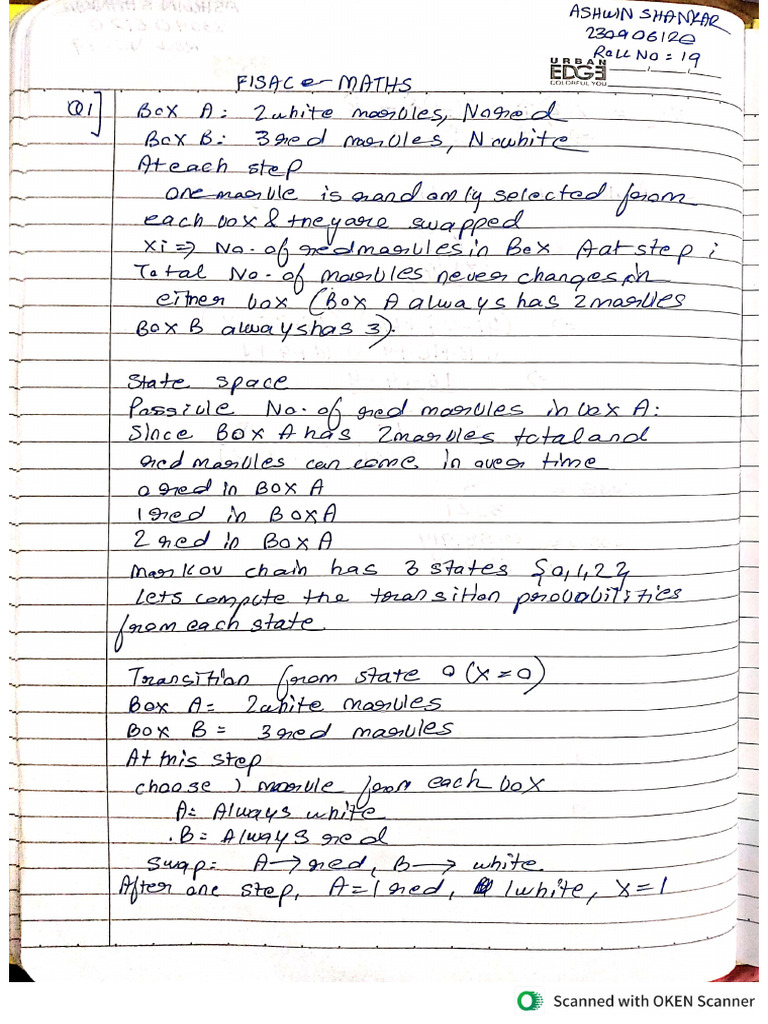 ASHWIN SHANKAR
230906120
Roll No = 19
URBAN
EDGE
COLORFUL YOU
FISAC - MATHS
Q1] Box A: 2 white marbles, No red
Box B: 3 red marbles, No white
At each step
one marble is randomly selected from
each box & they are swapped
Xi => No. of red marbles in Box A at step i
Total No. of marbles never changes in
either box (Box A always has 2 marbles
Box B always has 3).
State space
Possible No. of red marbles in box A:
Since Box A has 2 marbles total and
red marbles can come in over time
0 red in Box A
1 red in Box A
2 red in Box A
Markov chain has 3 states {0,1,2}
Lets compute the transition probabilities
from each state
Transition from state 0 (X=0)
Box A= 2 white marbles
Box B = 3 red marbles
At this step
choose 1 marble from each box
A= Always white
B= Always red
Swap: A → red, B → white.
After one step, A=1 red, 1 white, X=1
Scanned with OKEN Scanner